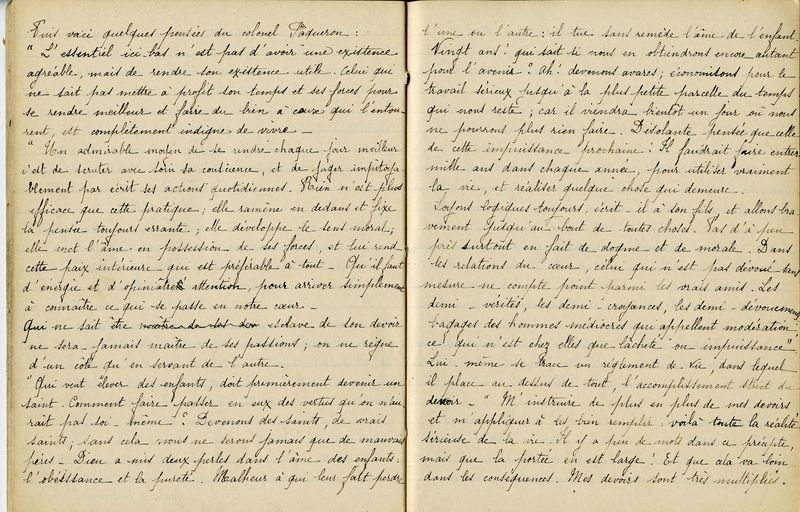 Puis voici quelques pensées du colonel Paqueron :
"L'essentiel ici-bas n'est pas d'avoir une existence
agréable, mais de rendre son existence utile. Celui qui
ne sait pas mettre à profit son temps et ses forces pour
se rendre meilleur et faire du bien à ceux qui l'entou-
rent, est complètement indigne de vivre _
"Un admirable moyen de se rendre chaque jour meilleur
c'est de scruter avec soin sa conscience, et de juger impitoya
blement par écrit ses actions quotidiennes. Rien n'est plus
efficace que cette pratique ; elle ramène en dedans et fixe
la pensée toujours errante ; elle développe le sens moral ;
elle met l'âme en possession de ses forces, et lui rend
cette paix intérieure qui est préférable à tout _ Qu'il faut
d'énergie et d'opiniâtre attention, pour arriver simplement
à connaître ce qui se passe en notre cœur _
Qui ne sait être esclave de son devoir
ne sera jamais maître de ses passions ; on ne règne
d'un côté qu'en servant de l'autre _
"Qui veut élever des enfants, doit premièrement devenir un
saint. Comment faire passer en eux des vertus qu'on n'au
rait pas soi-même ? Devenons des saints, de vrais
saints ; sans cela nous ne serons jamais que de mauvais
pères _ Dieu a mis deux perles dans l'âme des enfants :
l'obéissance et la pureté. Malheur à qui leur fait perdre
l'une ou l'autre : il tue sans remède l'âme de l'enfant
Vingt ans ! qui sait si nous en obtiendrons encore autant
pour l'avenir ? Ah ! devenons avares ; économisons pour le
travail sérieux jusqu'à la plus petite parcelle du temps
qui nous reste ; car il viendra bientôt un jour où nous
ne pourrons plus rien faire. Désolante pensée que celle
de cette impuissance prochaine ! Il faudrait faire entrer
mille ans dans chaque année, pour utiliser vraiment
la vie, et réaliser quelque chose qui demeure.
Soyons logiques toujours, écrit-il à son fils, et allons bra
vement jusqu'au bout de toutes choses. Pas d'à peu
près surtout en fait de dogme et de morale. Dans
les relations du cœur, celui qui n'est pas dévoué sans
mesure ne compte point parmi les vrais amis. Les
demi-vérités, les demi-croyances, les demi-dévouements
bagages des hommes médiocres qui appellent modération
ce qui n'est chez elles que lâcheté ou impuissance"
Lui-même se trace un règlement de vie, dans lequel
il place au dessus de tout, l'accomplissement strict du
devoir _ "M'instruire de plus en plus de mes devoirs
et m'appliquer à les bien remplir : voilà toute la réalité
sérieuse de la vie. Il y a peu de mots dans ce précepte,
mais que la portée en est large ! Et que cela va loin
dans les conséquences. Mes devoirs sont très multipliés.